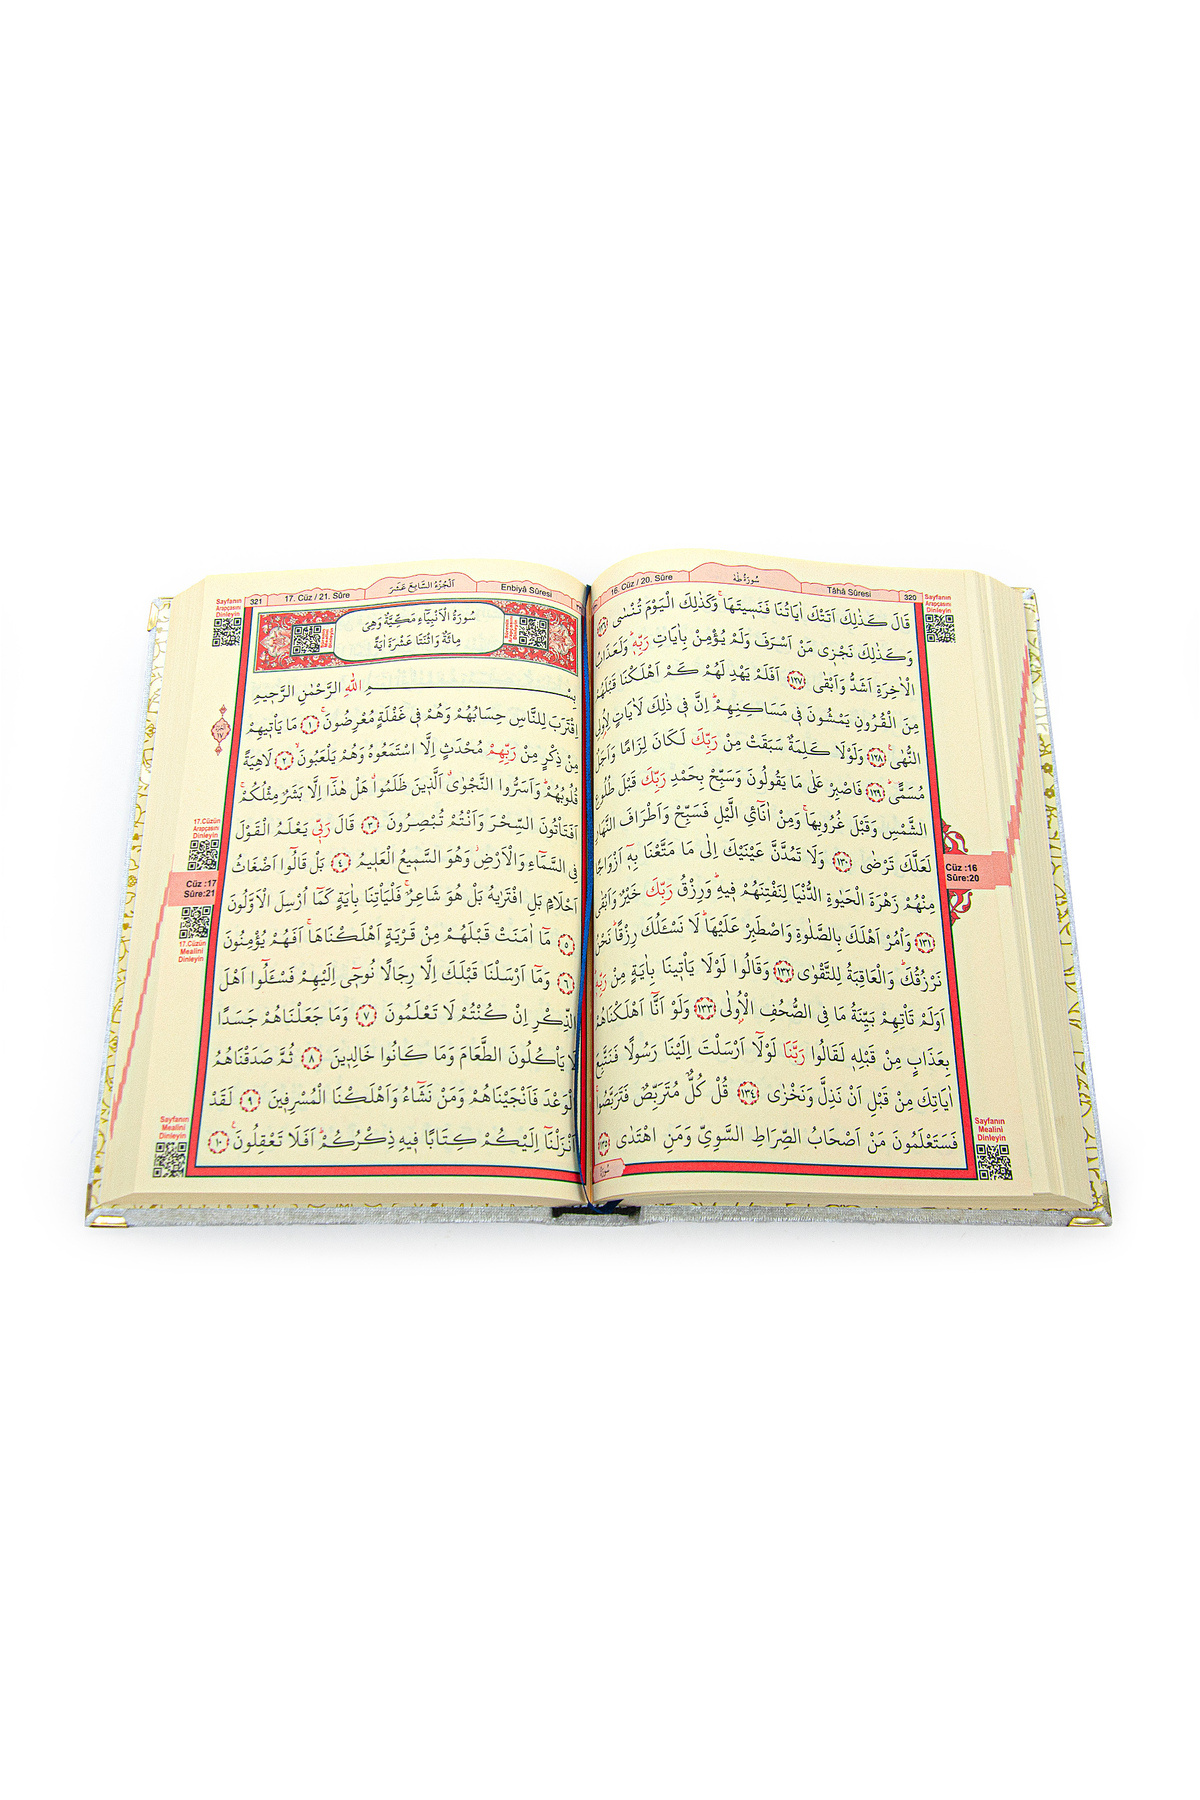 320
Tâhâ Sûresi
سُورَةُ طٰهٰ
16. Cüz / 20. Sûre
Sayfanın
Arapçasını
Dinleyin
قَالَ كَذٰلِكَ اَتَتْكَ اٰيَاتُنَا فَنَسٖيتَهَاۚ وَكَذٰلِكَ الْيَوْمَ تُنْسٰى ﴿١٢٦﴾
وَكَذٰلِكَ نَجْزٖى مَنْ اَسْرَفَ وَلَمْ يُؤْمِنْ بِاٰيَاتِ رَبِّهٖؕ وَلَعَذَابُ
الْاٰخِرَةِ اَشَدُّ وَاَبْقٰى ﴿١٢٧﴾ اَفَلَمْ يَهْدِ لَهُمْ كَمْ اَهْلَكْنَا قَبْلَهُمْ
مِنَ الْقُرُونِ يَمْشُونَ فٖى مَسَاكِنِهِمْؕ اِنَّ فٖى ذٰلِكَ لَاٰيَاتٍ لِاُولِى
النُّهٰىࣖ ﴿١٢٨﴾ وَلَوْلَا كَلِمَةٌ سَبَقَتْ مِنْ رَبِّكَ لَكَانَ لِزَامًا وَاَجَلٌ
مُسَمًّىؕ ﴿١٢٩﴾ فَاصْبِرْ عَلٰى مَا يَقُولُونَ وَسَبِّحْ بِحَمْدِ رَبِّكَ قَبْلَ طُلُوعِ
الشَّمْسِ وَقَبْلَ غُرُوبِهَاۚ وَمِنْ اٰنَٓائِ الَّيْلِ فَسَبِّحْ وَاَطْرَافَ النَّهَارِ
لَعَلَّكَ تَرْضٰى ﴿١٣٠﴾ وَلَا تَمُدَّنَّ عَيْنَيْكَ اِلٰى مَا مَتَّعْنَا بِهٖٓ اَزْوَاجًا
مِنْهُمْ زَهْرَةَ الْحَيٰوةِ الدُّنْيَا لِنَفْتِنَهُمْ فٖيهِؕ وَرِزْقُ رَبِّكَ خَيْرٌ وَاَبْقٰى
﴿١٣١﴾ وَأْمُرْ اَهْلَكَ بِالصَّلٰوةِ وَاصْطَبِرْ عَلَيْهَاؕ لَا نَسْـَٔلُكَ رِزْقًاؕ نَحْنُ
نَرْزُقُكَؕ وَالْعَاقِبَةُ لِلتَّقْوٰى ﴿١٣٢﴾ وَقَالُوا لَوْلَا يَأْتٖينَا بِاٰيَةٍ مِنْ رَبِّهٖؕ
اَوَلَمْ تَأْتِهِمْ بَيِّنَةُ مَا فِى الصُّحُفِ الْاُولٰى ﴿١٣٣﴾ وَلَوْ اَنَّٓا اَهْلَكْنَاهُمْ
بِعَذَابٍ مِنْ قَبْلِهٖ لَقَالُوا رَبَّنَا لَوْلَٓا اَرْسَلْتَ اِلَيْنَا رَسُولًا فَنَتَّبِعَ
اٰيَاتِكَ مِنْ قَبْلِ اَنْ نَذِلَّ وَنَخْزٰى ﴿١٣٤﴾ قُلْ كُلٌّ مُتَرَبِّصٌ فَتَرَبَّصُواۚ
فَسَتَعْلَمُونَ مَنْ اَصْحَابُ الصِّرَاطِ السَّوِىِّ وَمَنِ اهْتَدٰى ﴿١٣٥﴾
Cüz :16
Sûre:20
Sayfanın
Mealini
Dinleyin
Enbiyâ Sûresi
اَلْجُزْءُ السَّابِعَ عَشَرَ
17. Cüz / 21. Sûre
321
Sayfanın
Arapçasını
Dinleyin
سُورَةُ الْاَنْبِيَٓاءِ مَكِّيَّةٌ وَهِىَ
مِائَةٌ وَاثْنَتَا عَشْرَةَ اٰيَةً
بِسْمِ اللّٰهِ الرَّحْمٰنِ الرَّحٖيمِ
اِقْتَرَبَ لِلنَّاسِ حِسَابُهُمْ وَهُمْ فٖى غَفْلَةٍ مُعْرِضُونَۚ ﴿١﴾ مَا يَأْتٖيهِمْ
مِنْ ذِكْرٍ مِنْ رَبِّهِمْ مُحْدَثٍ اِلَّا اسْتَمَعُوهُ وَهُمْ يَلْعَبُونَۙ ﴿٢﴾ لَاهِيَةً
قُلُوبُهُمْؕ وَاَسَرُّوا النَّجْوَىۗ اَلَّذٖينَ ظَلَمُواۗ هَلْ هٰذَٓا اِلَّا بَشَرٌ مِثْلُكُمْۚ
اَفَتَأْتُونَ السِّحْرَ وَاَنْتُمْ تُبْصِرُونَ ﴿٣﴾ قَالَ رَبّٖى يَعْلَمُ الْقَوْلَ
فِى السَّمَٓاءِ وَالْاَرْضِؗ وَهُوَ السَّمٖيعُ الْعَلٖيمُ ﴿٤﴾ بَلْ قَالُٓوا اَضْغَاثُ
اَحْلَامٍ بَلِ افْتَرٰيهُ بَلْ هُوَ شَاعِرٌۚ فَلْيَأْتِنَا بِاٰيَةٍ كَمَٓا اُرْسِلَ الْاَوَّلُونَ
﴿٥﴾ مَٓا اٰمَنَتْ قَبْلَهُمْ مِنْ قَرْيَةٍ اَهْلَكْنَاهَاۚ اَفَهُمْ يُؤْمِنُونَ
﴿٦﴾ وَمَٓا اَرْسَلْنَا قَبْلَكَ اِلَّا رِجَالًا نُوحٖٓى اِلَيْهِمْ فَسْـَٔلُٓوا اَهْلَ
الذِّكْرِ اِنْ كُنْتُمْ لَا تَعْلَمُونَ ﴿٧﴾ وَمَا جَعَلْنَاهُمْ جَسَدًا
لَا يَأْكُلُونَ الطَّعَامَ وَمَا كَانُوا خَالِدٖينَ ﴿٨﴾ ثُمَّ صَدَقْنَاهُمُ
الْوَعْدَ فَاَنْجَيْنَاهُمْ وَمَنْ نَشَٓاءُ وَاَهْلَكْنَا الْمُسْرِفٖينَ ﴿٩﴾ لَقَدْ
اَنْزَلْنَٓا اِلَيْكُمْ كِتَابًا فٖيهِ ذِكْرُكُمْؕ اَفَلَا تَعْقِلُونَࣖ ﴿١٠﴾
17.Cüzün
Arapçasını
Dinleyin
Cüz :17
Sûre:21
17.Cüzün
Mealini
Dinleyin
Sayfanın
Mealini
Dinleyin